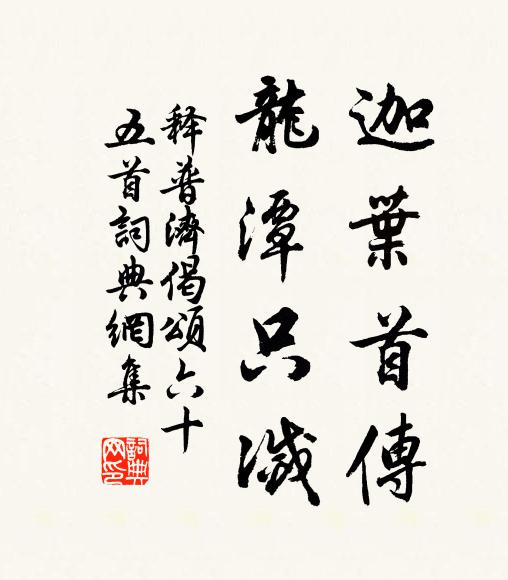 迦葉首傳
龍潭只滅
释普濟偈頌六十
五首詞典網集
詞典
网印